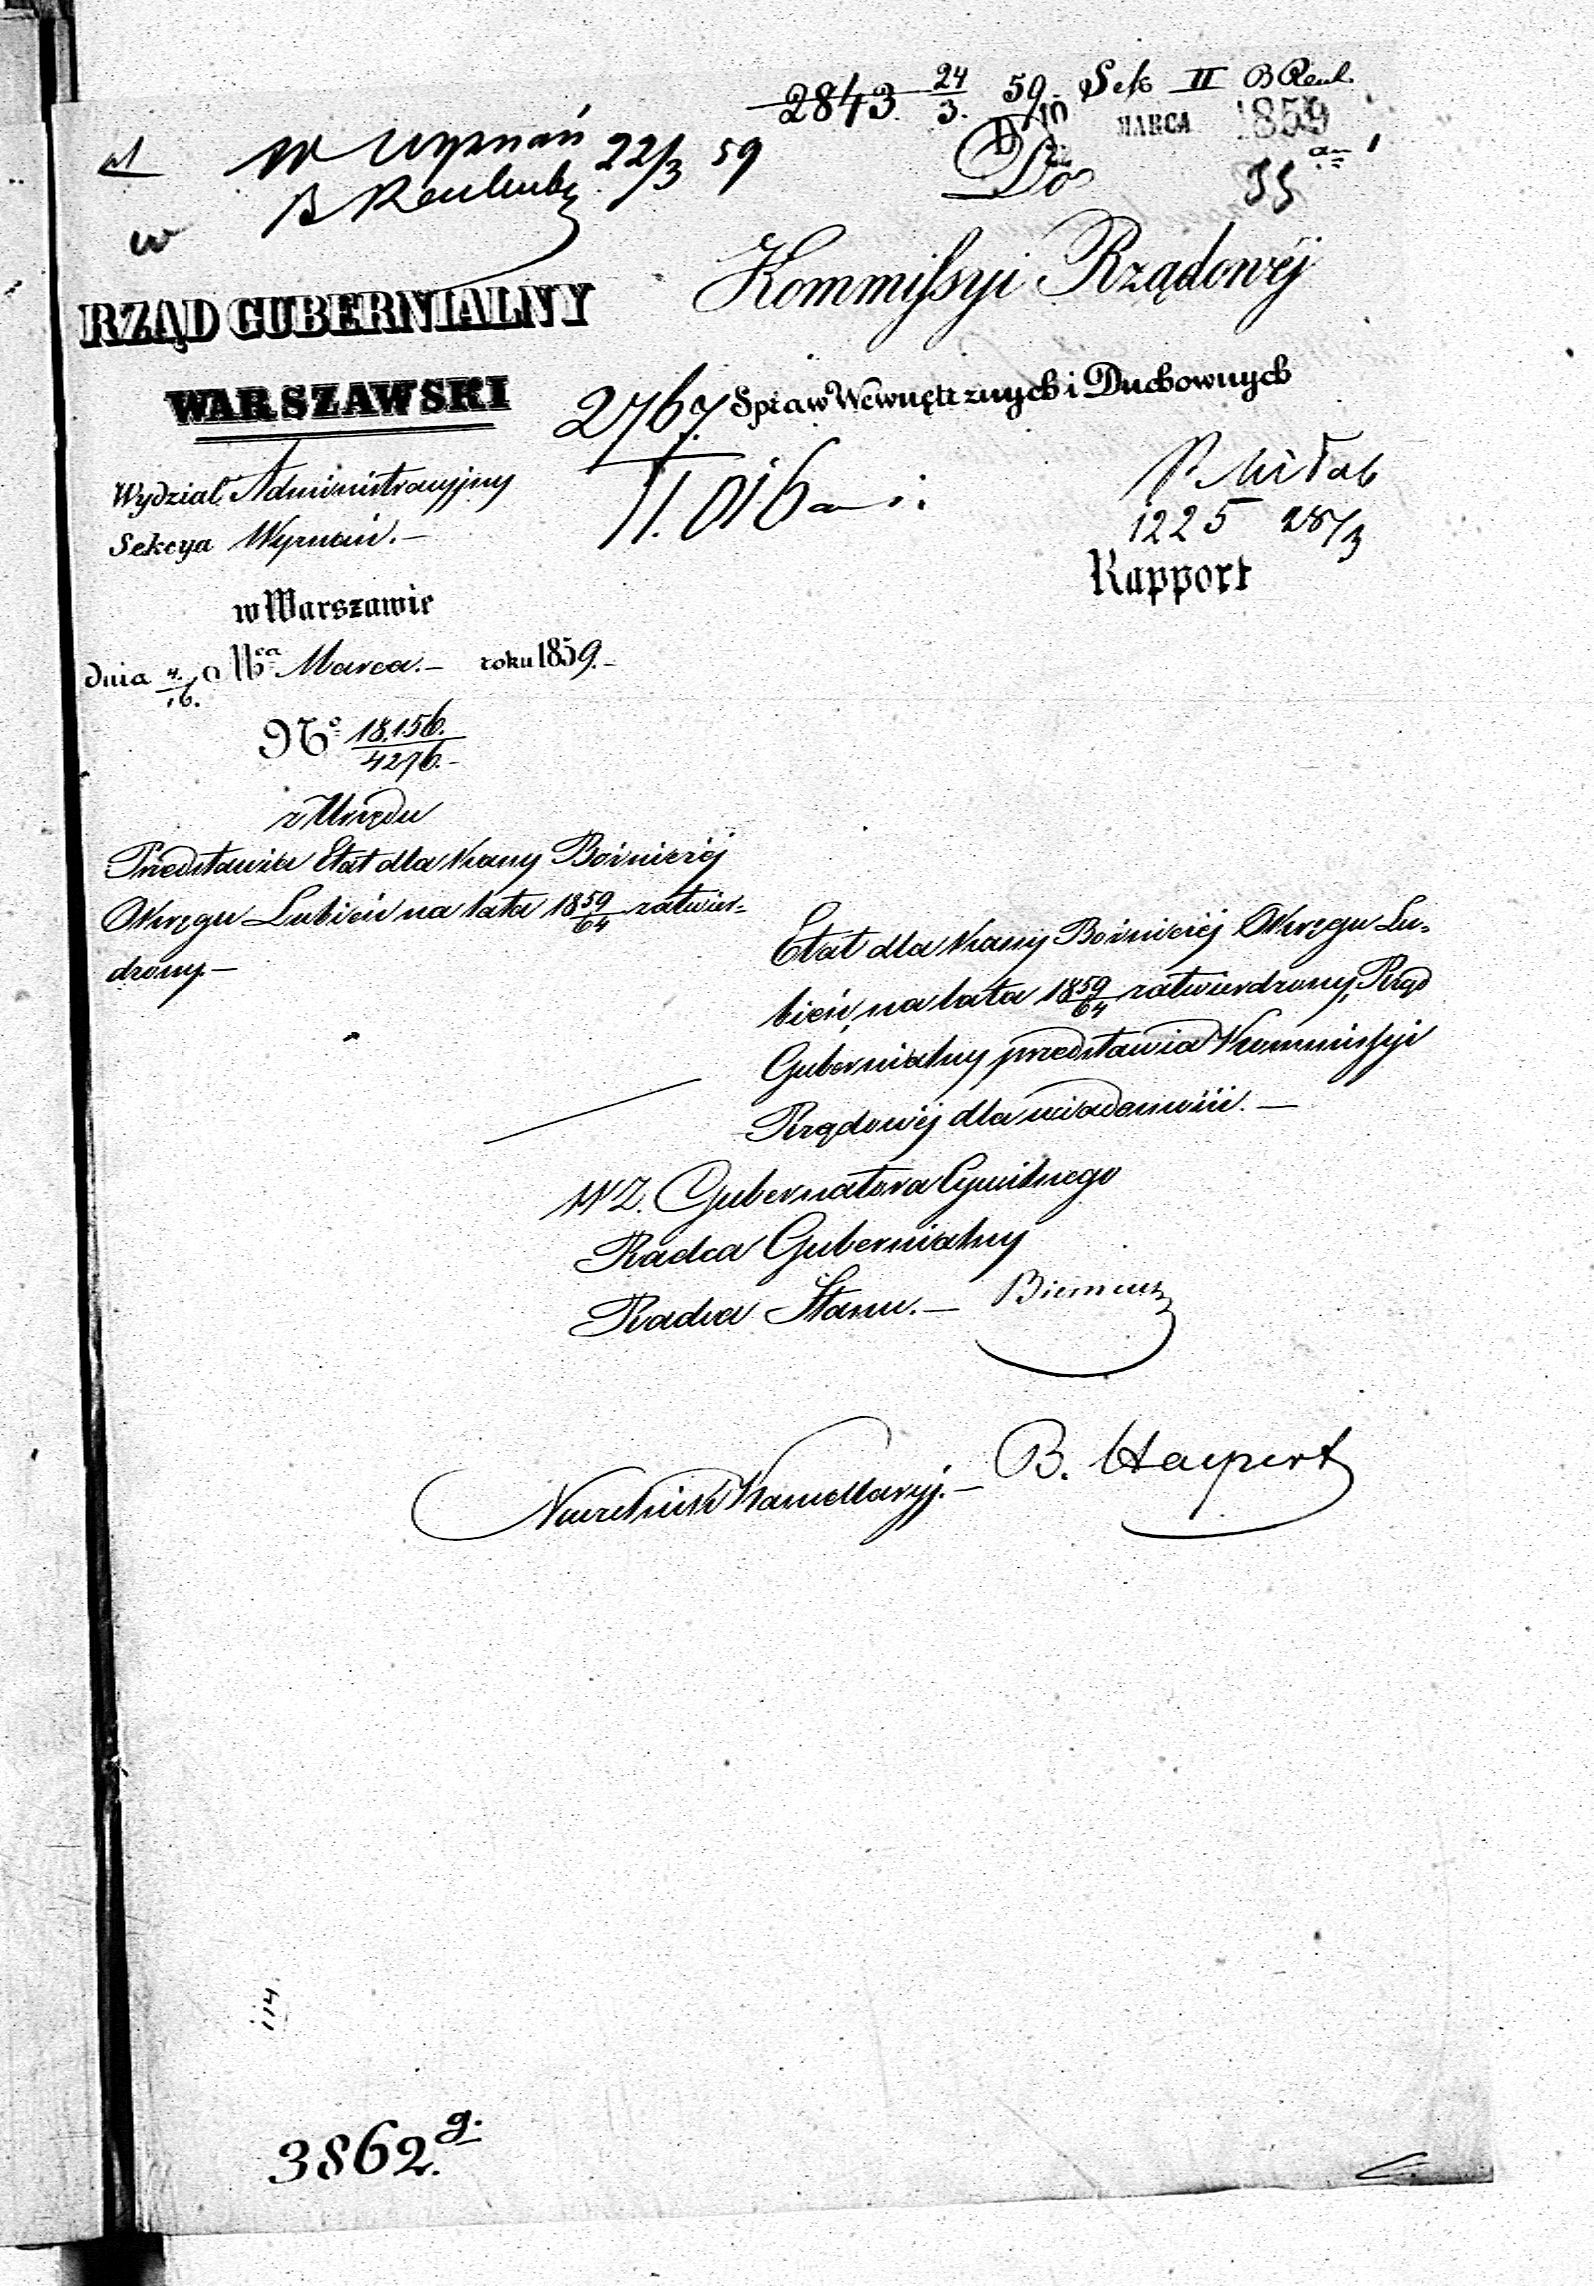 2843 24/3 59 Sek II B Reul.
MARCA 1859
W Wyznań 22/3 59
Do
w
Kommissyi Rządowéj
RZĄD GUBERNIALNY
WARSZAWSKI
2767. Spraw Wewnętrznych i Duchownych
11.016
Wydział Administracyjny
Sekcya Wyznań.—
1225 28/3
Rapport
w Warszawie
dnia 4/16. Marca.— roku 1859.—
No 18.156./4276.—
z Urzędu
Przedstawia Etat dla Kassy Bóżniczéj
Okręgu Lubień na lata 18 59/64 zatwier=
dzony.—
Etat dla Kassy Bóżniczéj Okręgu Lu=
bień, na lata 18 59/64 zatwierdzony, Rząd
Gubernialny przedstawia Kommissyi
Rządowéj dla wiadomości.—
W Z. Gubernatora Cywilnego
Radca Gubernialny
Radca Stanu.—
Naczelnik Kancellaryj.— B. Halpert
114
3862. g.